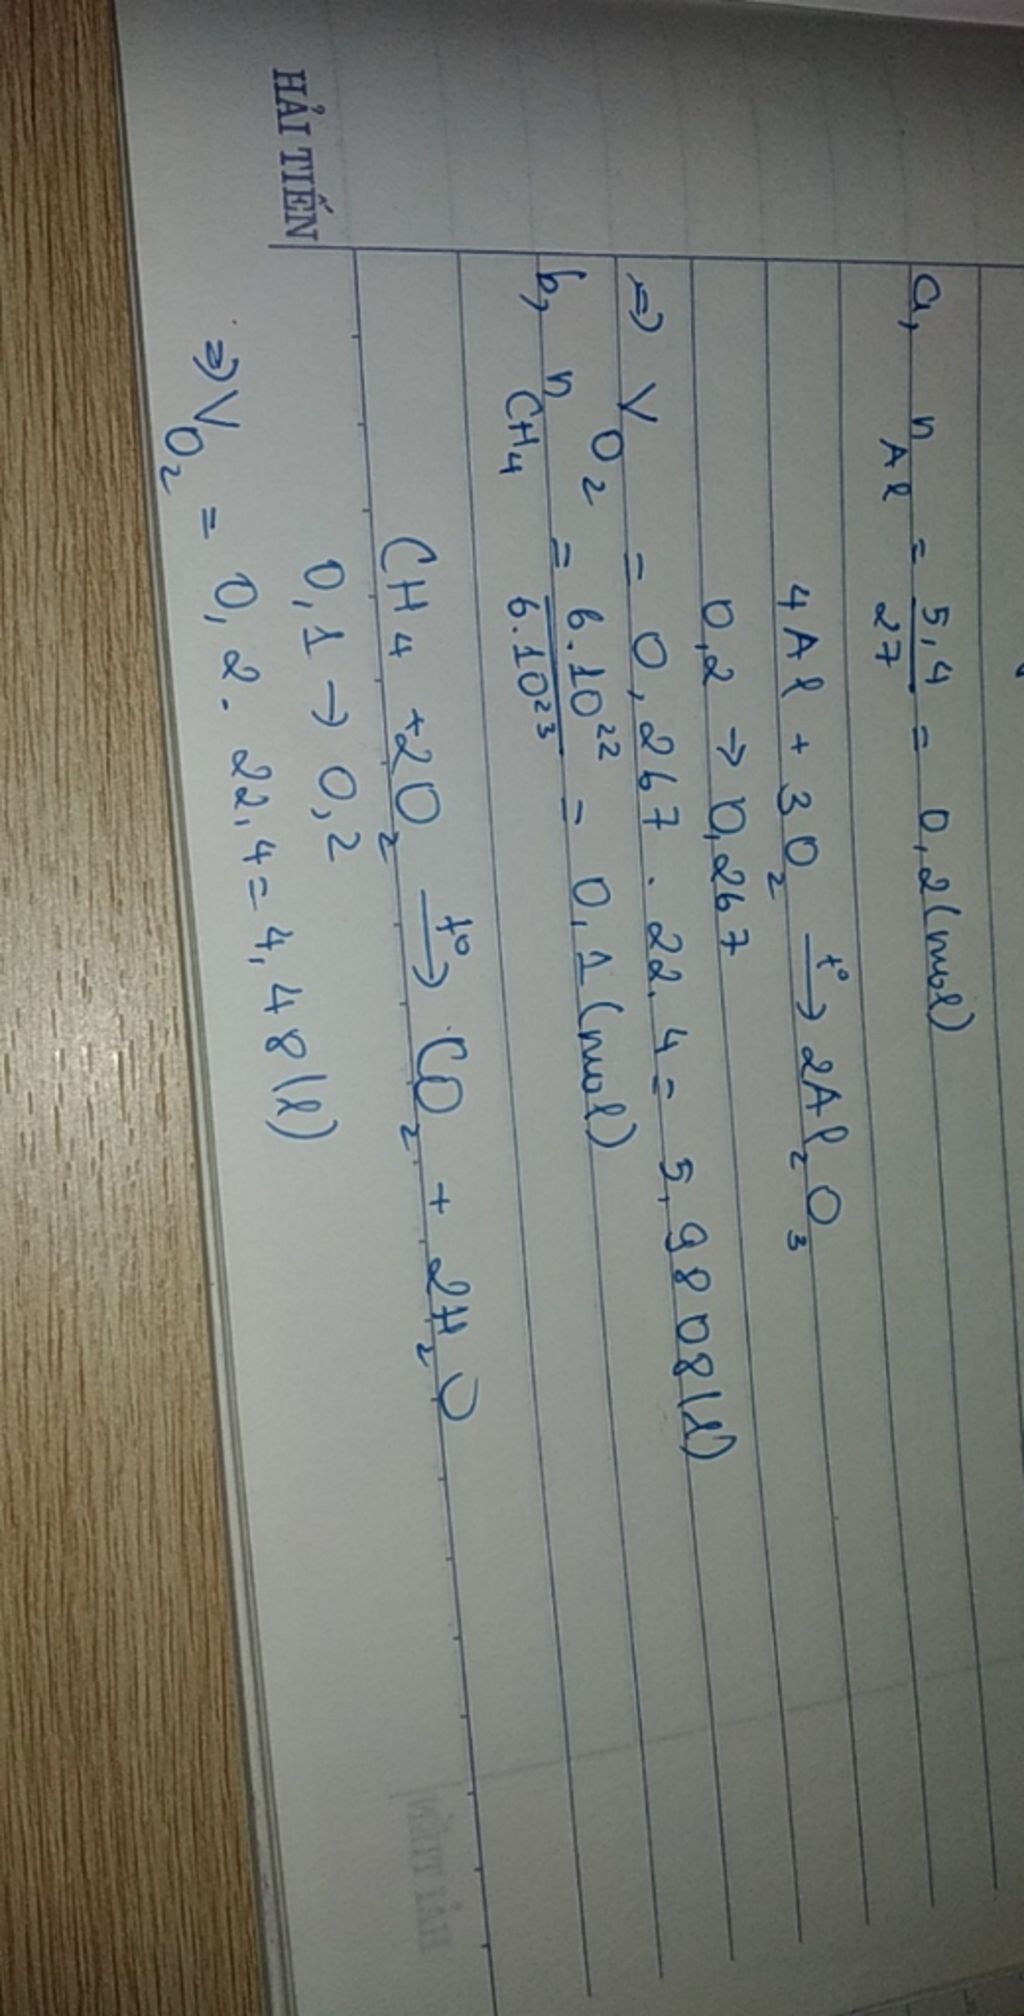 a, n Al = 5,4/27 = 0,2 (mol)
4Al + 3O2 t° → 2Al2O3
0,2 → 0,267
=> V O2 = 0,267 . 22,4 = 5,9808 (l)
b, n CH4 = 6.10^22/6.10^23 = 0,1 (mol)
CH4 + 2O2 t° → CO2 + 2H2O
0,1 → 0,2
=> V O2 = 0,2. 22,4 = 4,48 (l)
HẢI TIẾN